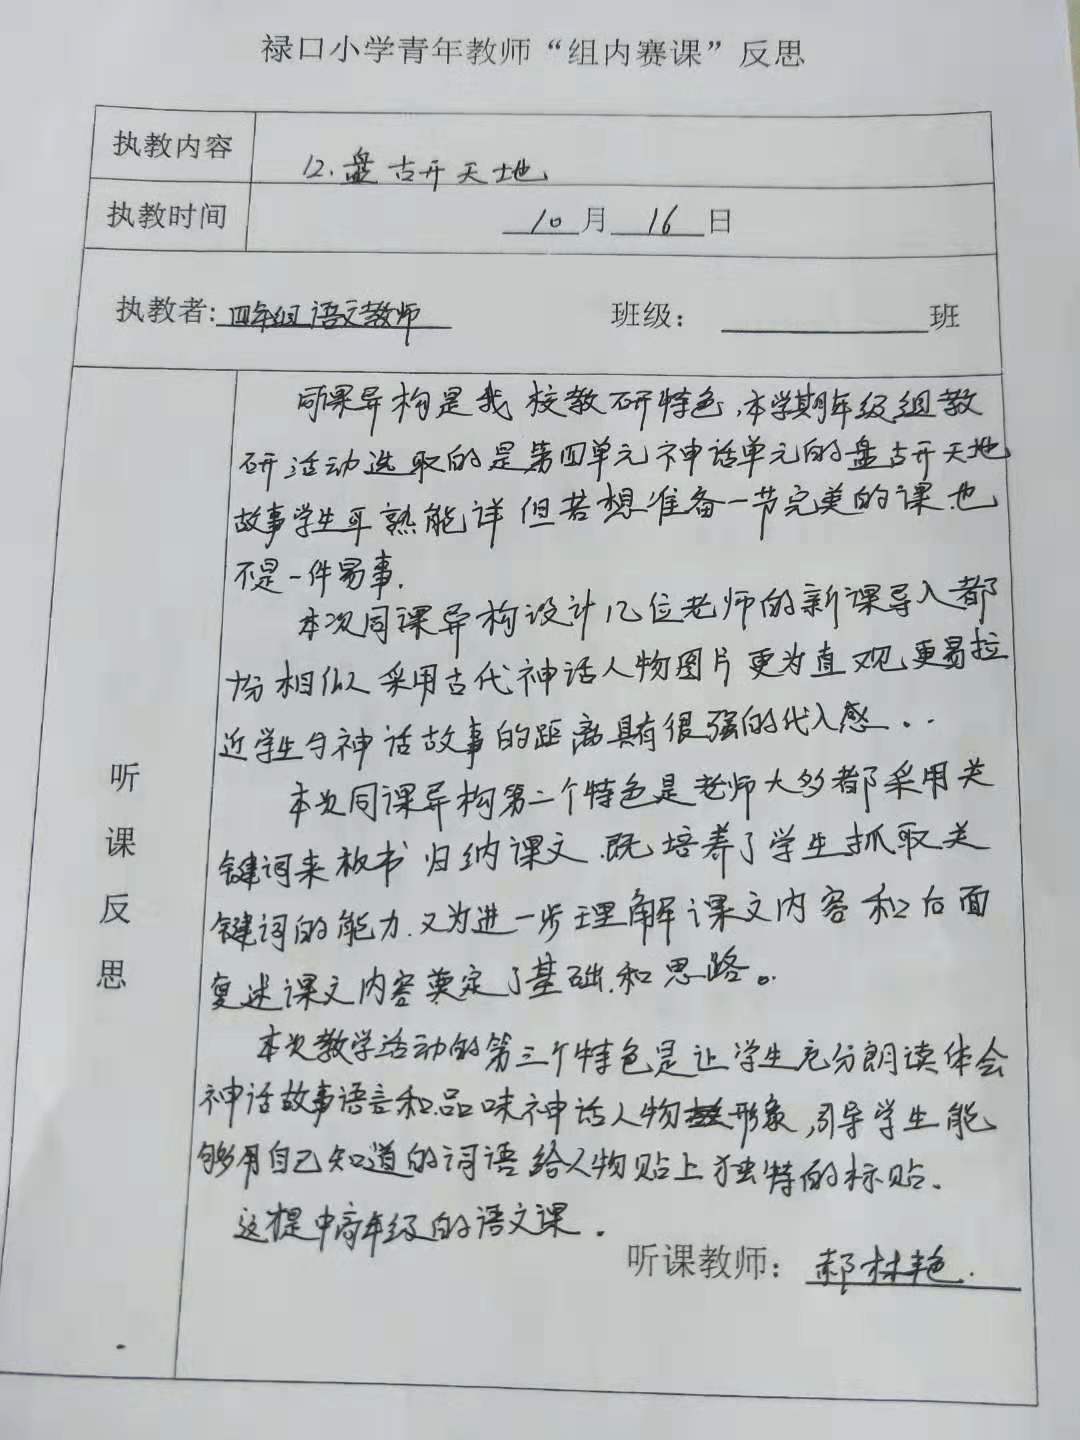 禄口小学青年教师“组内赛课”反思
执教内容 12.盘古开天地
执教时间 10月16日
执教者:四年组语文教师 班级：班
同课异构是我校教研特色,本学期年级组教
研活动选取的是第四单元神话单元的盘古开天地
故事学生耳熟能详但若想准备一节完美的课.也
不是一件易事.
本次同课异构设计几位老师的新课导入都
十分相似采用古代神话人物图片更为直观,更易拉
近学生与神话故事的距离具有很强的代入感...
本次同课异构第二个特色是老师大多都采用关
键词来板书归纳课文.既培养了学生抓取关
键词的能力.又为进一步理解课文内容和后面
复述课文内容奠定了基础.和思路。
本次教学活动的第三个特色是让学生充分朗读体会
神话故事语言和品味神话人物形象,引导学生能
够用自己知道的词语给人物贴上独特的标贴.
这才是中高年级的语文课.
听课反思
听课教师：郝林艳.